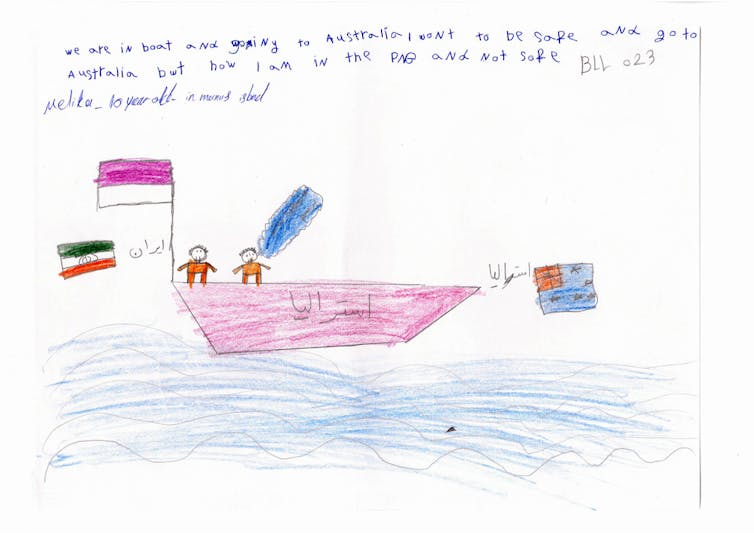 we are in boat and going to Australia I wont to be safe and go to
Australia but how I am in the PNG and not safe BLL 023
Melika - 10 year old - in manus island
ایران
استرالیا
استرالیا